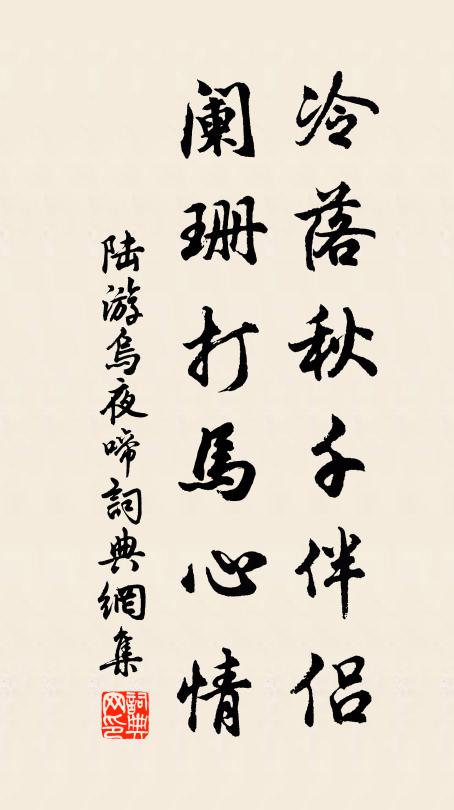 冷落秋千伴侣
阑珊打馬心情
陆游烏夜啼詞典網集
詞典网印